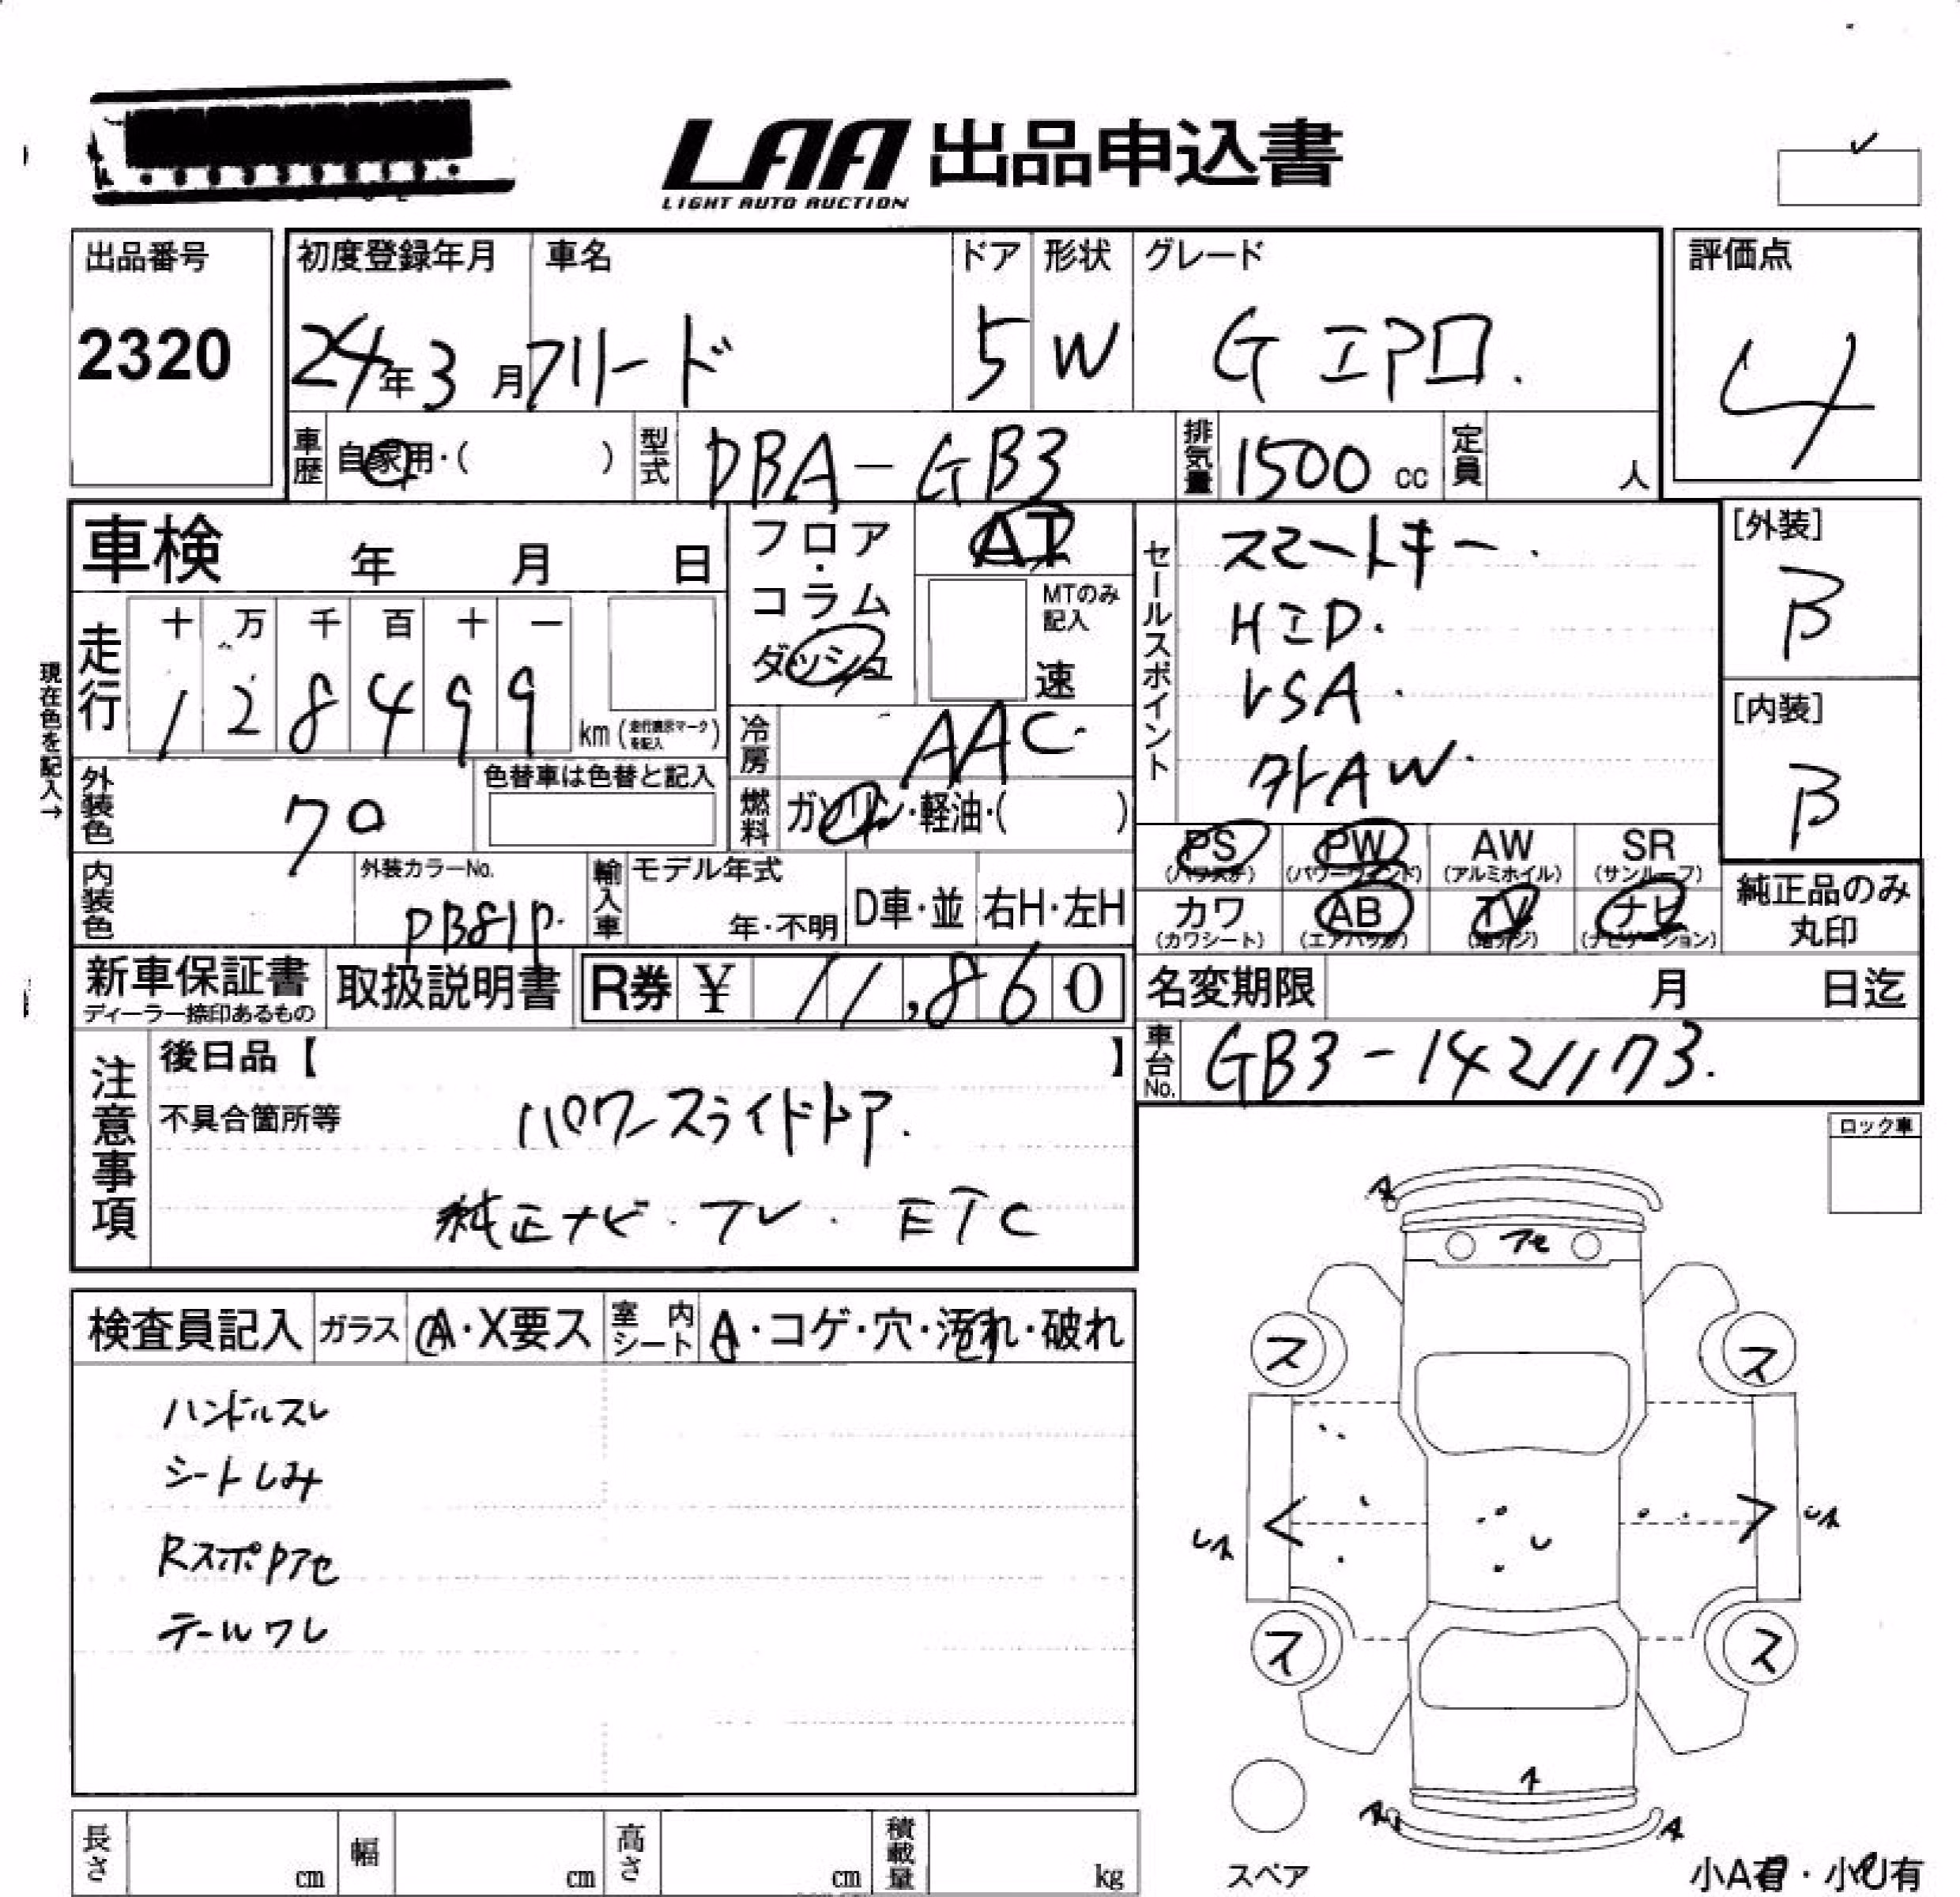 LAA 出品申込書
LIGHT AUTO AUCTION
出品番号
2320
初度登録年月
24年3月
車名
フリード
ドア
5
形状
W
グレード
G エアロ.
評価点
4
車歴
自家用・( )
型式
DBA-GB3
排気量
1500 cc
定員
人
車検 年 月 日
フロア・コラム
ダッシュ
AT
MTのみ記入
速
セールスポイント
スマートキー.
HID.
VSA.
外AW.
[外装]
B
[内装]
B
現在色を記入→
走行
十 万 千 百 十 一
1 2 8 4 9 9
km (走行表示マークを記入)
冷房
AAC.
外装色
クロ
色替車は色替と記入
燃料
ガソリン・軽油・( )
PS (パワステ)
PW (パワーウインド)
AW (アルミホイル)
SR (サンルーフ)
カワ (カワシート)
AB (エアバック)
TV (地デジ)
ナビ (ナビゲーション)
純正品のみ丸印
内装色
外装カラーNo.
PB81P.
輸入車
モデル年式
年・不明
D車・並
右H・左H
新車保証書
ディーラー捺印あるもの
取扱説明書
R券 ¥ 11,860
名変期限 月 日迄
車台No.
GB3-1421173.
注意事項
後日品【 】
不具合箇所等
パワースライドドア.
純正ナビ. TV. ETC
ロック車
検査員記入
ガラス
A・X要ス
室内シート
A・コゲ・穴・汚れ・破れ
ハンドルスレ
シートしみ
RスポDアセ
テールワレ
ア
アセ
ス ス
ス ス
スペア
小A有・小U有
長さ cm
幅 cm
高さ cm
積載量 kg